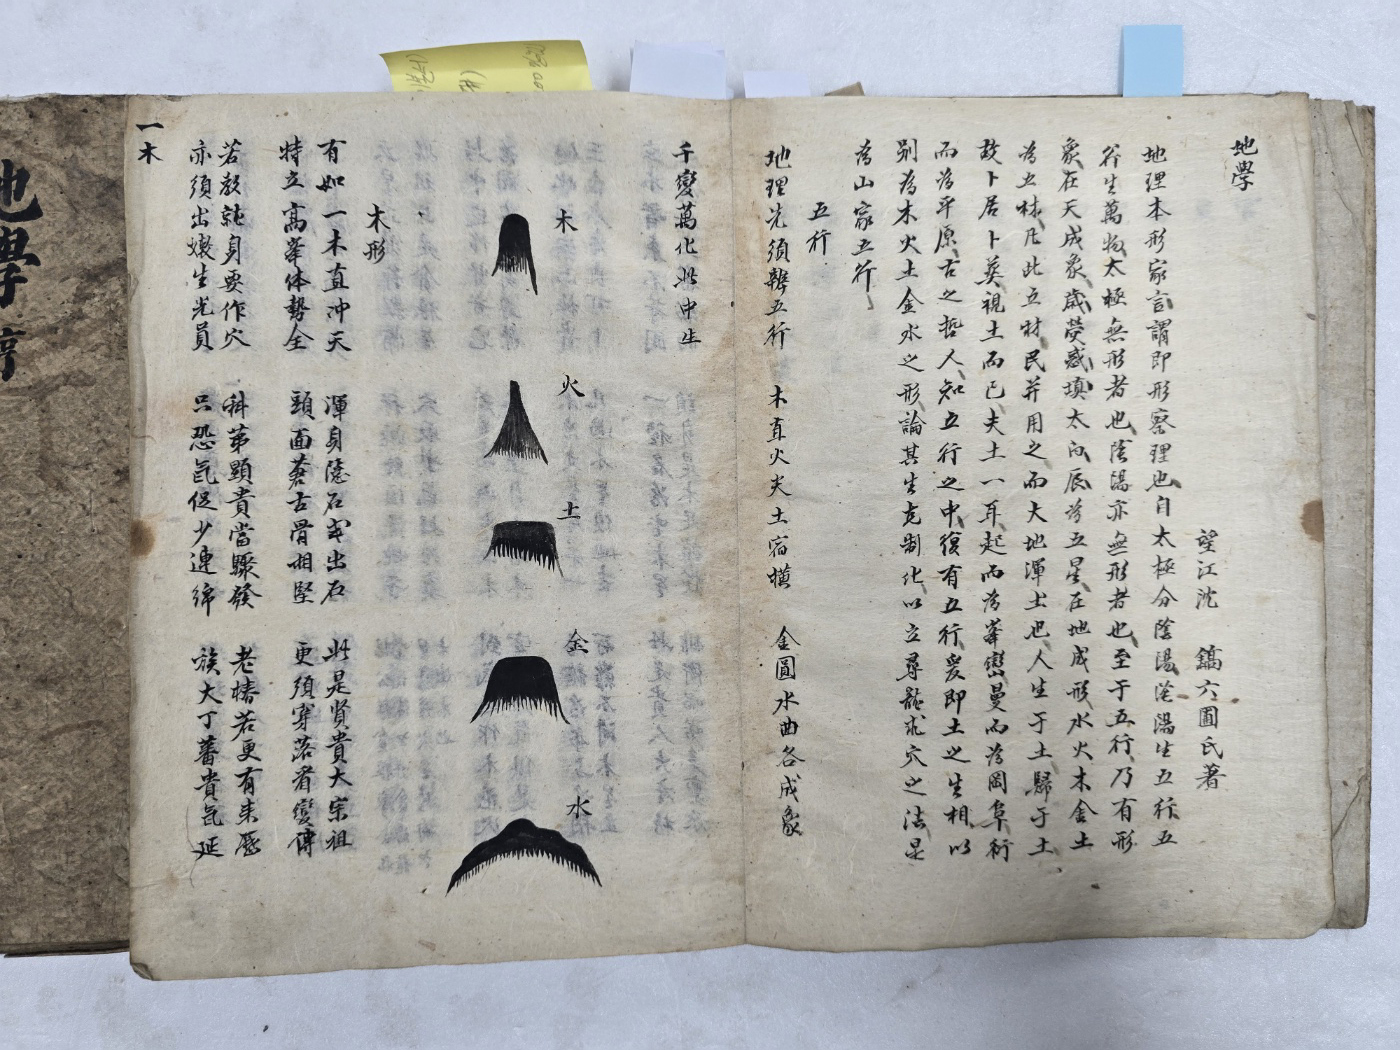 地學
望江沈　鎬六圃氏著
地理本形家言謂即形察理也自太極分陰陽陰陽生五行五
行生萬物太極無形者也陰陽亦無形者也至于五行乃有形
象在天成象歲熒惑填太白辰為五星在地成形水火木金土
為五材凡此五材民并用之而大地渾土也人生于土歸于土
故卜居卜葬視土而已夫土一耳起而為峯巒曼而為岡阜衍
而為平原古之哲人知五行之中復有五行爰即土之生相以
別為木火土金水之形論其生克制化以立尋龍求穴之法是
為山家五行
五行
地理先須辨五行　木直火尖土宿橫　金圓水曲各成象
千變萬化此中生
木
火
土
金
水
木形
有如一木直沖天　渾身隱石或出石　此是貴貴大宗祖
特立高峯体勢全　頭面蒼古骨相堅　更須穿落看變傳
若教純身要作穴　科第顯貴當驟發　老椿若更有来歷
亦須出嫩生光員　只恐氣促少連綿　族大丁蕃貴氣延
一木
地學